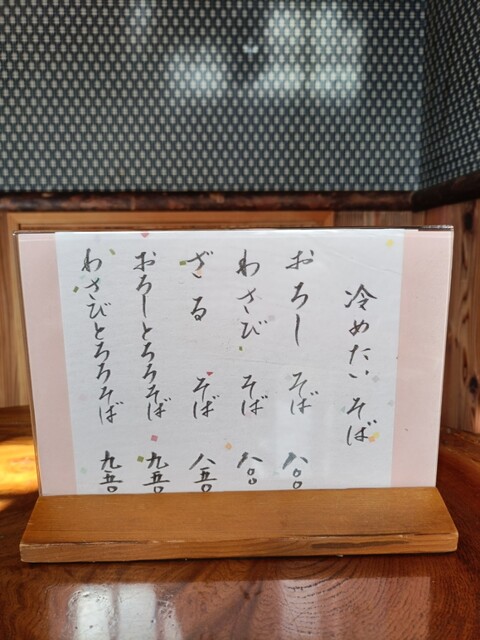 冷めたいそば
おろしそば 八〇〇
わさびそば 八〇〇
ざるそば 八五〇
おろしとろろそば 九五〇
わさびとろろそば 九五〇